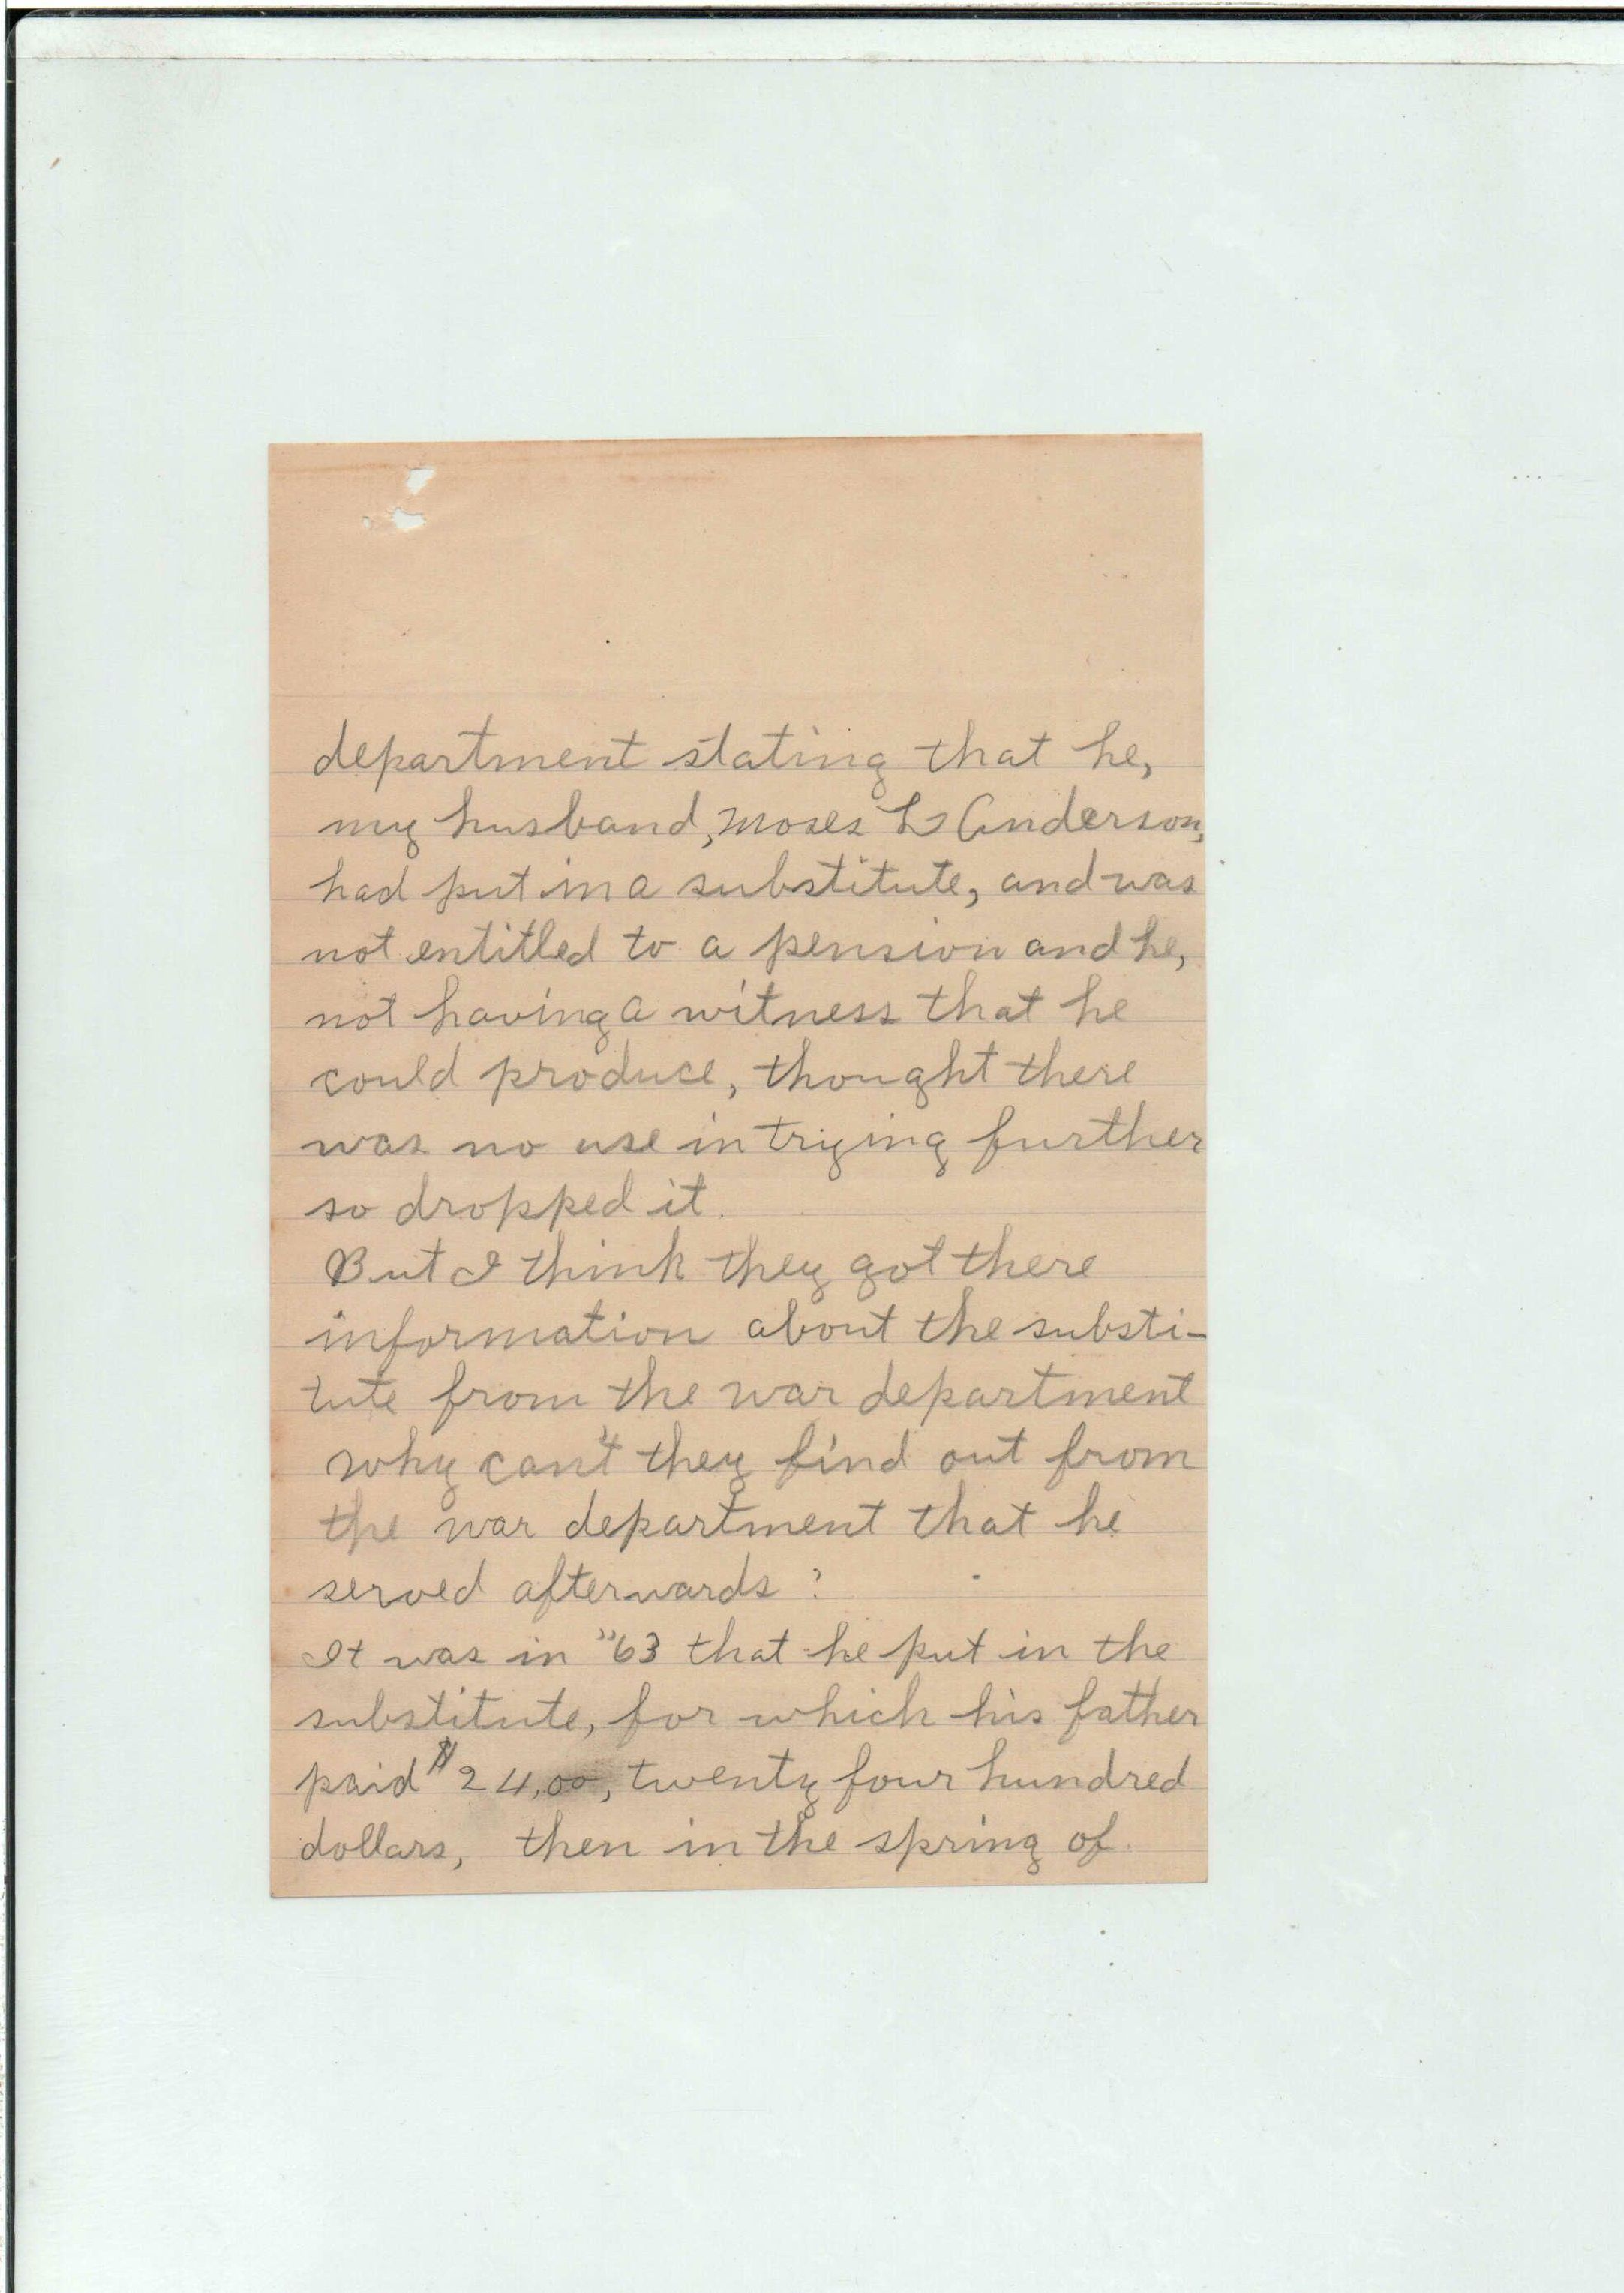 department stating that he,
my husband, Moses L Anderson,
had put in a substitute, and was
not entitled to a pension and he,
not having a witness that he
could produce, thought there
was no use in trying further
so dropped it.
But I think they got there
information about the substi-
tute from the war department
why can't they find out from
the war department that he
served afterwards?
It was in "63 that he put in the
substitute, for which his father
paid $24,00, twenty four hundred
dollars, then in the spring of